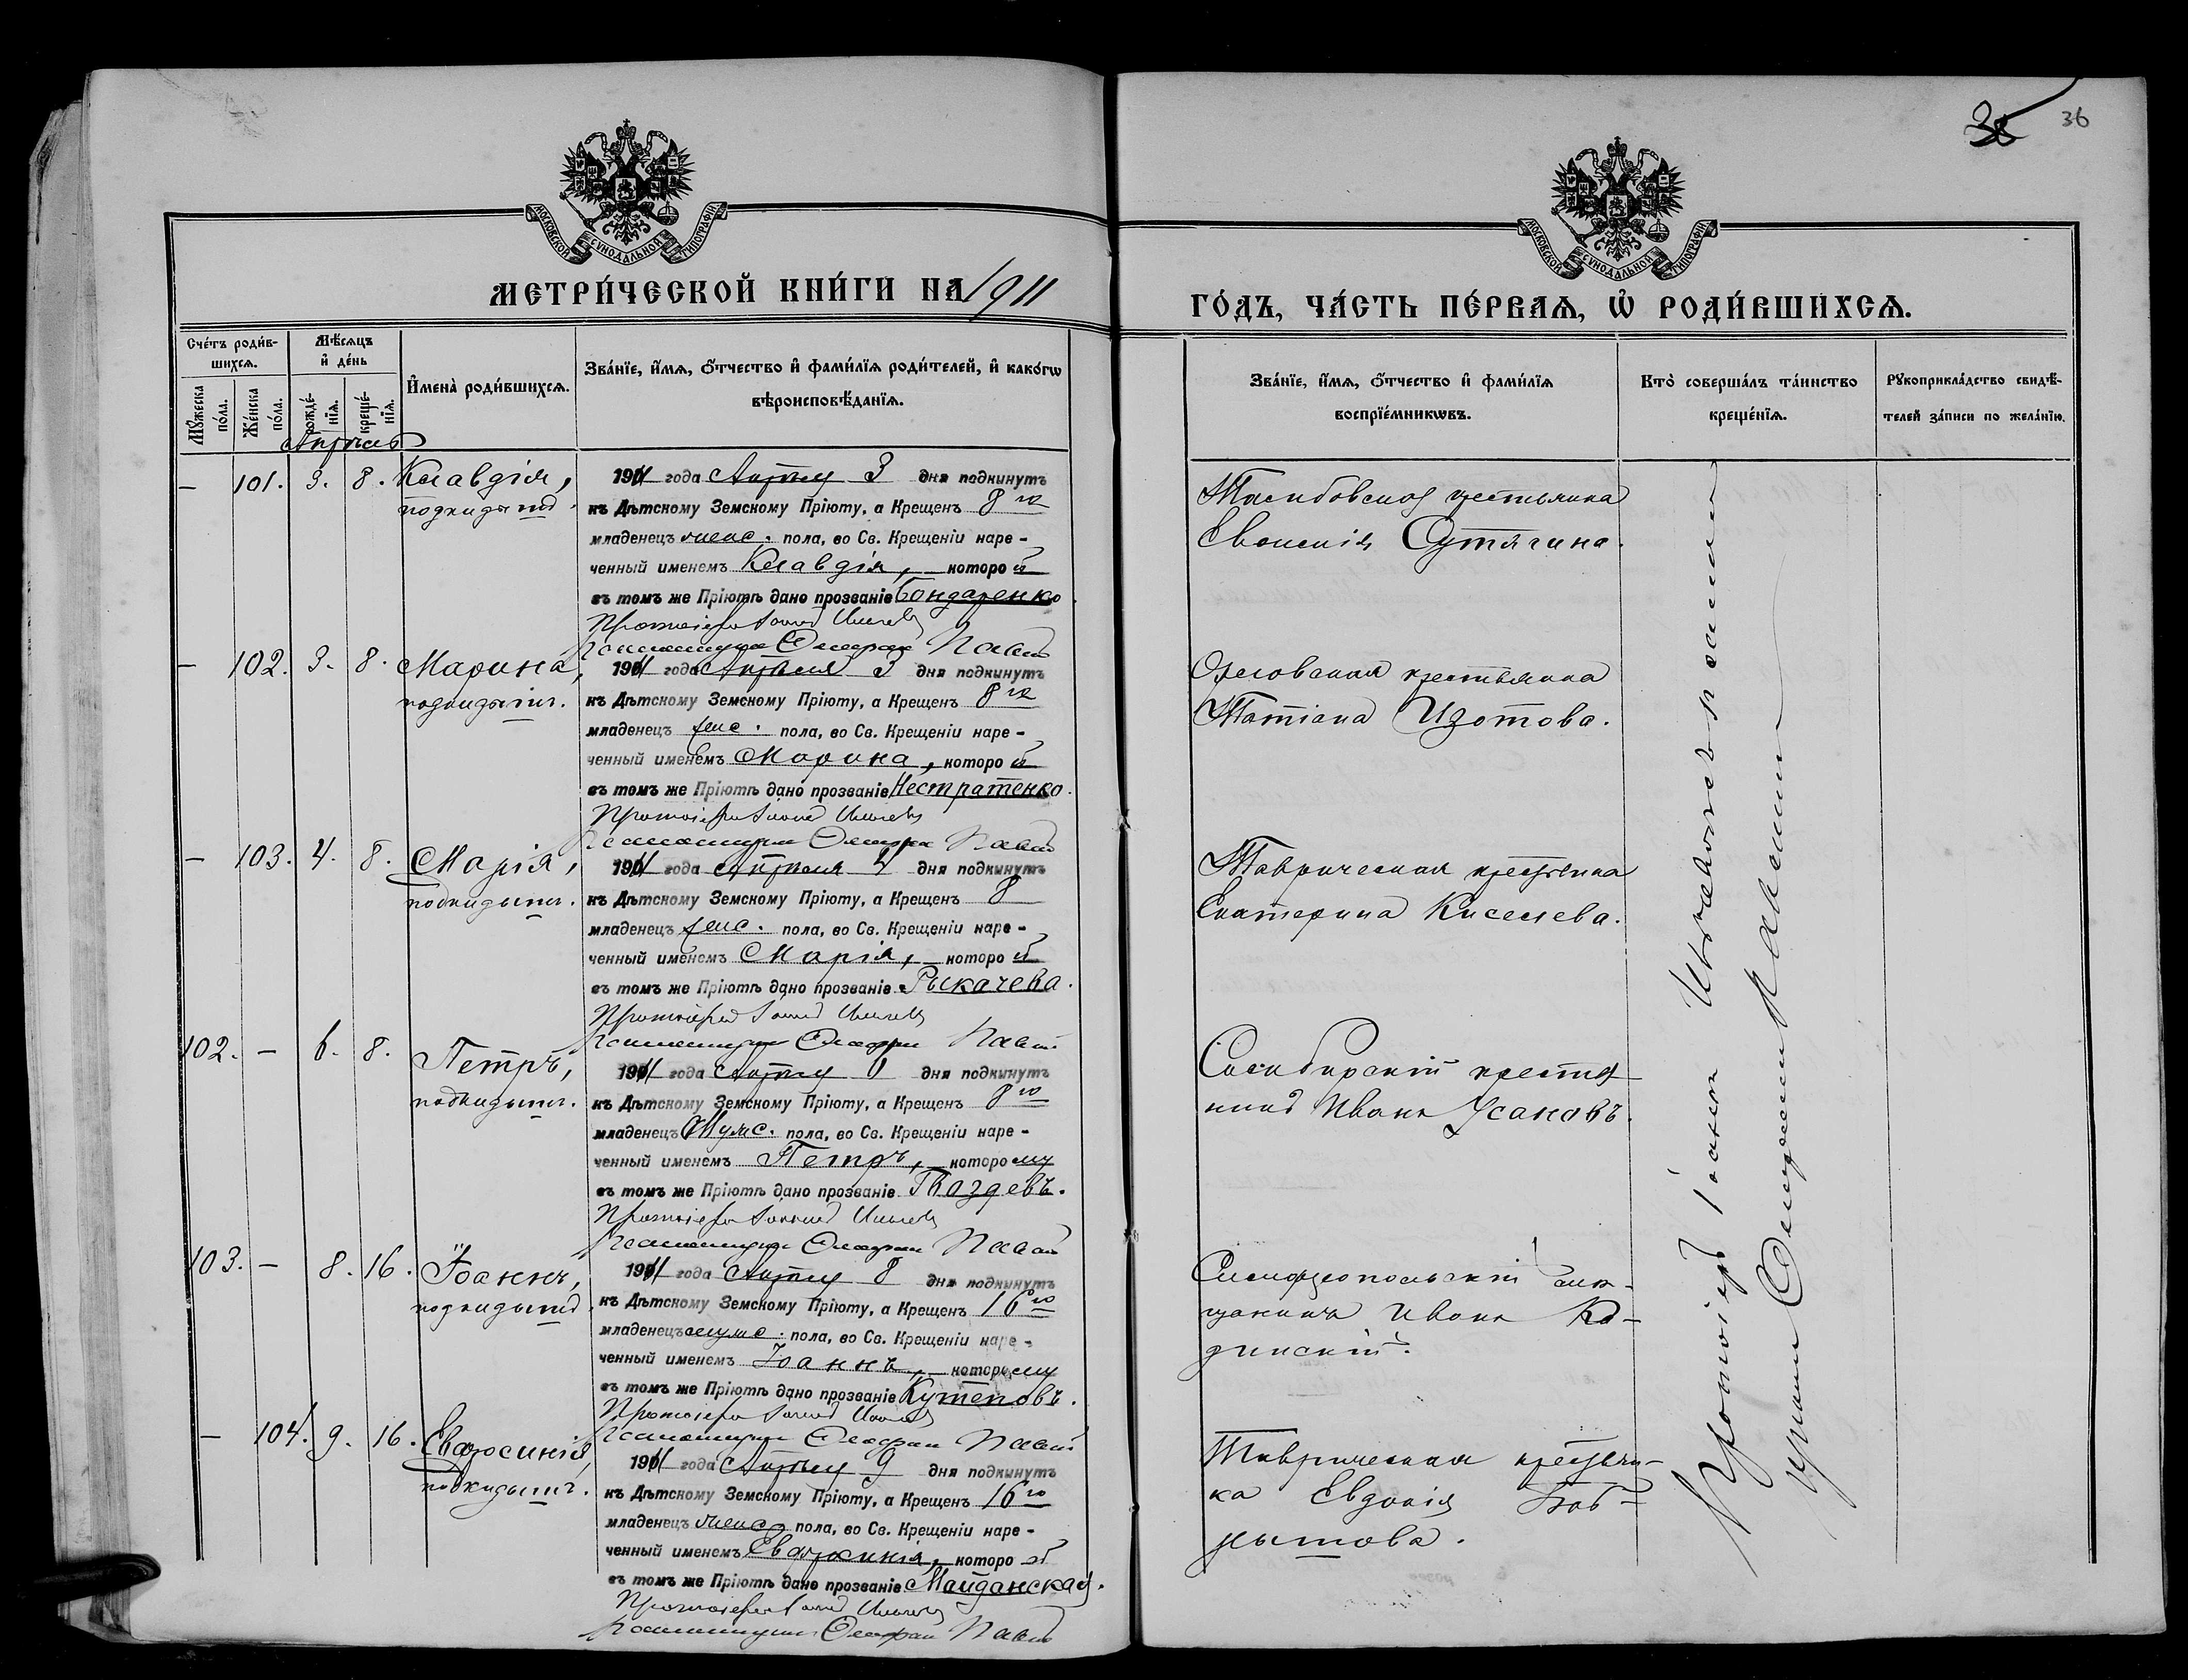 36
МОСКОВСКОЙ СѴНОДАЛЬНОЙ ТИПОГРАФІИ
МОСКОВСКОЙ СѴНОДАЛЬНОЙ ТИПОГРАФІИ
МЕТРИ́ЧЕСКОЙ КНИ́ГИ НА 1911
ГО́ДЪ, ЧА́СТЬ ПЕ́РВАѦ, Ѡ҆ РОДИ́ВШИХСѦ.
Сче́тъ роди́в-
шихсѧ.
Мꙋ́жеска по́ла.
Же́нска по́ла.
Мѣ́сѧцъ
и҆ де́нь
рожде́-нїѧ.
креще́-нїѧ.
И҆мена̀ роди́вшихсѧ.
Зва́нїе, и҆́мѧ, ѻ҆́тчество и҆ фами́лїѧ роди́телей, и҆ како́гѡ
вѣроисповѣ́данїѧ.
Зва́нїе, и҆́мѧ, ѻ҆́тчество и҆ фами́лїѧ
воспрїе́мникѡвъ.
Кто̀ соверша́лъ та́инство
креще́нїѧ.
Рꙋкоприкла́дство свидѣ́-
телей за́писи по жела́нїю.
Апрѣль
— 101. 3. 8. Клавдія,
подкидышъ.
1911 года Апрѣля 3 дня подкинутъ
къ Дѣтскому Земскому Пріюту, а Крещенъ 8го
младенецъ женс. пола, во Св. Крещеніи наре-
ченный именемъ Клавдія, которой
въ томъ же Пріютѣ дано прозваніе Бондаренко.
Протоіерей Іоаннъ
Псаломщикъ
крестьянка
Евгенія Сутягина.
— 102. 3. 8. Марина,
подкидышъ.
1911 года Апрѣля 3 дня подкинутъ
къ Дѣтскому Земскому Пріюту, а Крещенъ 8го
младенецъ женс. пола, во Св. Крещеніи наре-
ченный именемъ Марина, которой
въ томъ же Пріютѣ дано прозваніе Нестратенко.
Протоіерей Іоаннъ
Псаломщикъ
Орловская крестьянка
Татіана Изотова.
— 103. 4. 8. Марія,
подкидышъ.
1911 года Апрѣля 4 дня подкинутъ
къ Дѣтскому Земскому Пріюту, а Крещенъ 8
младенецъ женс. пола, во Св. Крещеніи наре-
ченный именемъ Марія, которой
въ томъ же Пріютѣ дано прозваніе Рыкачева.
Протоіерей Іоаннъ
Псаломщикъ
Таврическая крестьянка
Екатерина Киселева.
102. — 6. 8. Петръ,
подкидышъ.
1911 года Апрѣля 6 дня подкинутъ
къ Дѣтскому Земскому Пріюту, а Крещенъ 8го
младенецъ Мужс. пола, во Св. Крещеніи наре-
ченный именемъ Петръ, которому
въ томъ же Пріютѣ дано прозваніе Гвоздевъ.
Протоіерей Іоаннъ
Псаломщикъ
крестья-
нинъ Иванъ Усановъ.
103. — 8. 16. Іоаннъ,
подкидышъ.
1911 года Апрѣля 8 дня подкинутъ
къ Дѣтскому Земскому Пріюту, а Крещенъ 16го
младенецъ мужс. пола, во Св. Крещеніи наре-
ченный именемъ Іоаннъ, которому
въ томъ же Пріютѣ дано прозваніе Кутеповъ.
Протоіерей Іоаннъ
Псаломщикъ
Симферопольскій мѣ-
щанинъ Иванъ Ко-
динскій.
— 104. 9. 16. Евфросинія,
подкидышъ.
1911 года Апрѣля 9 дня подкинутъ
къ Дѣтскому Земскому Пріюту, а Крещенъ 16го
младенецъ женс. пола, во Св. Крещеніи наре-
ченный именемъ Евфросинія, которой
въ томъ же Пріютѣ дано прозваніе Майданская.
Протоіерей Іоаннъ
Псаломщикъ
Таврическая крестьян-
ка Евдокія
Протоіерей Іоаннъ